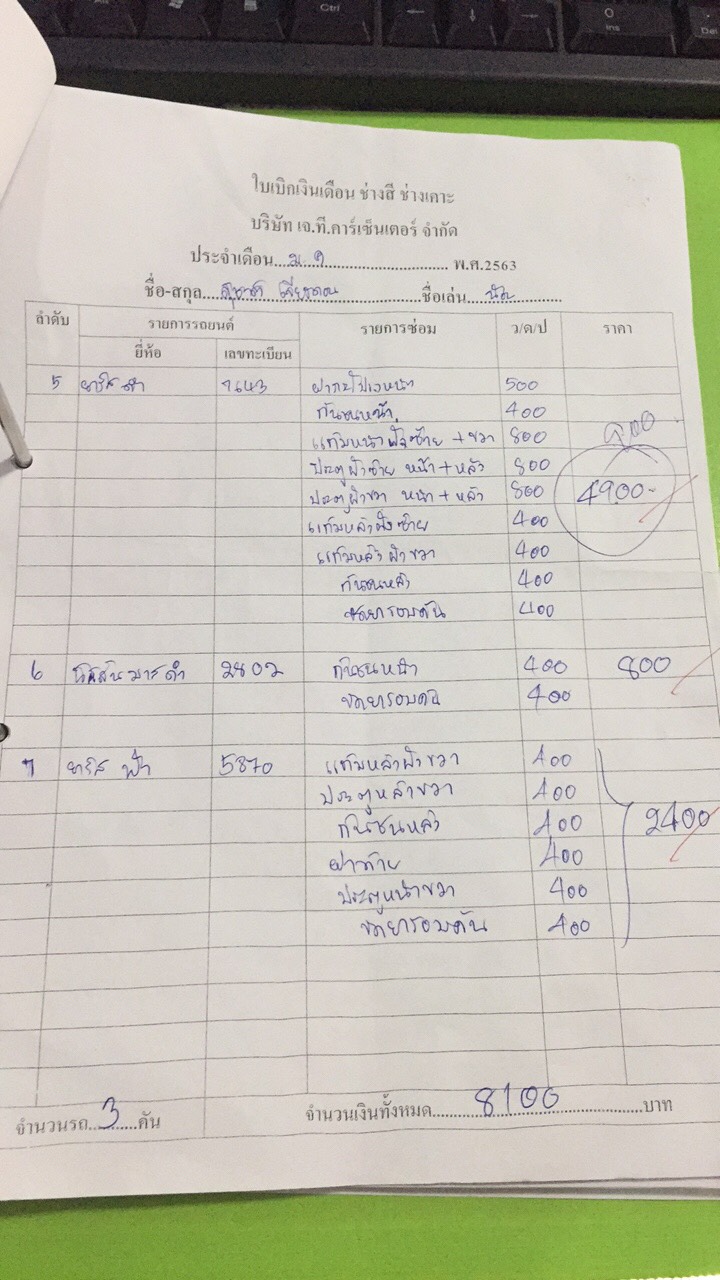 ใบเบิกเงินเดือน ช่างสี ช่างเคาะ
บริษัท เจ.ที.คาร์เซ็นเตอร์ จำกัด
ประจำเดือน...ม.ค....พ.ศ.2563
ชื่อ-สกุล...ชื่อเล่น...
ลำดับ รายการรถยนต์ รายการซ่อม ว/ด/ป ราคา
ยี่ห้อ เลขทะเบียน
5 ยาริส ดำ 7643 ฝากระโปรงหน้า 500
กันชนหน้า 400
แก้มหน้าฝั่งซ้าย + ขวา 800
ประตูฝั่งซ้าย หน้า + หลัง 800
ประตูฝั่งขวา หน้า + หลัง 800 4900-
แก้มหลังฝั่งซ้าย 400
แก้มหลังฝั่งขวา 400
กันชนหลัง 400
ขัดยารอบคัน 400
6 นิสสันมาร์ดำ 2802 กันชนหน้า 400 800
ขัดยารอบคัน 400
7 ยาริส ฟ้า 5870 แก้มหลังฝั่งขวา 400
ประตูหลังขวา 400
กันชนหลัง 400 2400
ฝาท้าย 400
ประตูหน้าขวา 400
ขัดยารอบคัน 400
จำนวนรถ..3..คัน จำนวนเงินทั้งหมด...8100...บาท